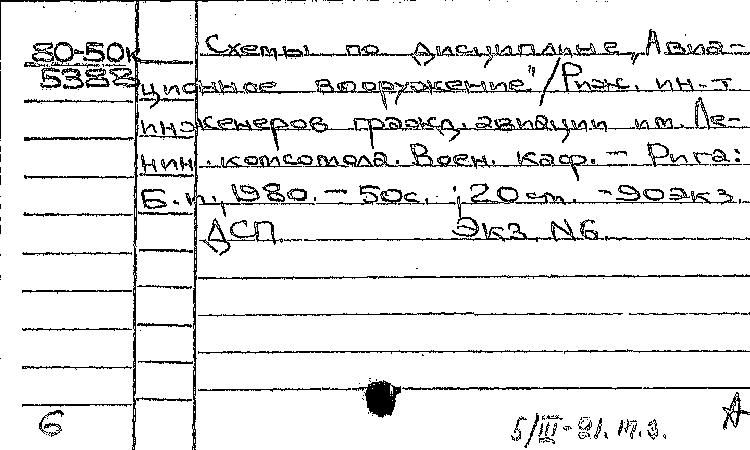 80-50к Схемы по дисциплине „Авиа-
5388 ционное вооружение"/Риж. ин-т
инженеров гражд. авиации им. Ле-
нин. комсомола. Воен. каф. — Рига:
Б.и., 1980. — 50с. ; 20см. - 90экз.
ДСП. Экз. N6.
6
5/III-81. м.з. А